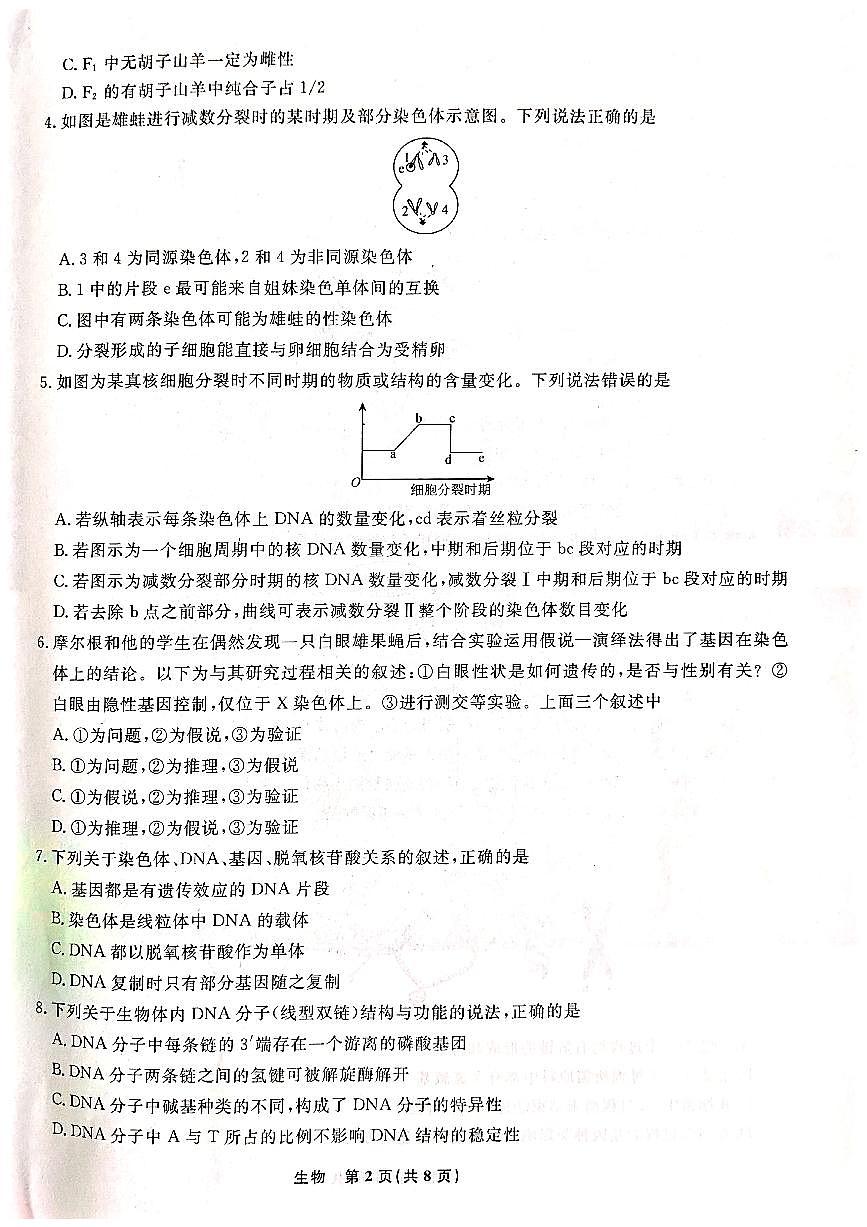 C. F₁ 中无胡子山羊一定为雌性
D. F₂ 的有胡子山羊中纯合子占 1/2
4. 如图是雄蛙进行减数分裂时的某时期及部分染色体示意图。下列说法正确的是
1 3
e
2 4
A. 3 和 4 为同源染色体,2 和 4 为非同源染色体
B. 1 中的片段 e 最可能来自姐妹染色单体间的互换
C. 图中有两条染色体可能为雄蛙的性染色体
D. 分裂形成的子细胞能直接与卵细胞结合为受精卵
5. 如图为某真核细胞分裂时不同时期的物质或结构的含量变化。下列说法错误的是
b c
a d e
O
细胞分裂时期
A. 若纵轴表示每条染色体上 DNA 的数量变化,cd 表示着丝粒分裂
B. 若图示为一个细胞周期中的核 DNA 数量变化,中期和后期位于 bc 段对应的时期
C. 若图示为减数分裂部分时期的核 DNA 数量变化,减数分裂Ⅰ中期和后期位于 bc 段对应的时期
D. 若去除 b 点之前部分,曲线可表示减数分裂Ⅱ整个阶段的染色体数目变化
6. 摩尔根和他的学生在偶然发现一只白眼雄果蝇后,结合实验运用假说—演绎法得出了基因在染色
体上的结论。以下为与其研究过程相关的叙述:①白眼性状是如何遗传的,是否与性别有关? ②
白眼由隐性基因控制,仅位于 X 染色体上。③进行测交等实验。上面三个叙述中
A. ①为问题,②为假说,③为验证
B. ①为问题,②为推理,③为假说
C. ①为假说,②为推理,③为验证
D. ①为推理,②为假说,③为验证
7. 下列关于染色体、DNA、基因、脱氧核苷酸关系的叙述,正确的是
A. 基因都是有遗传效应的 DNA 片段
B. 染色体是线粒体中 DNA 的载体
C. DNA 都以脱氧核苷酸作为单体
D. DNA 复制时只有部分基因随之复制
8. 下列关于生物体内 DNA 分子(线型双链)结构与功能的说法,正确的是
A. DNA 分子中每条链的 3′端存在一个游离的磷酸基团
B. DNA 分子两条链之间的氢键可被解旋酶解开
C. DNA 分子中碱基种类的不同,构成了 DNA 分子的特异性
D. DNA 分子中 A 与 T 所占的比例不影响 DNA 结构的稳定性
生物 第 2 页(共 8 页)